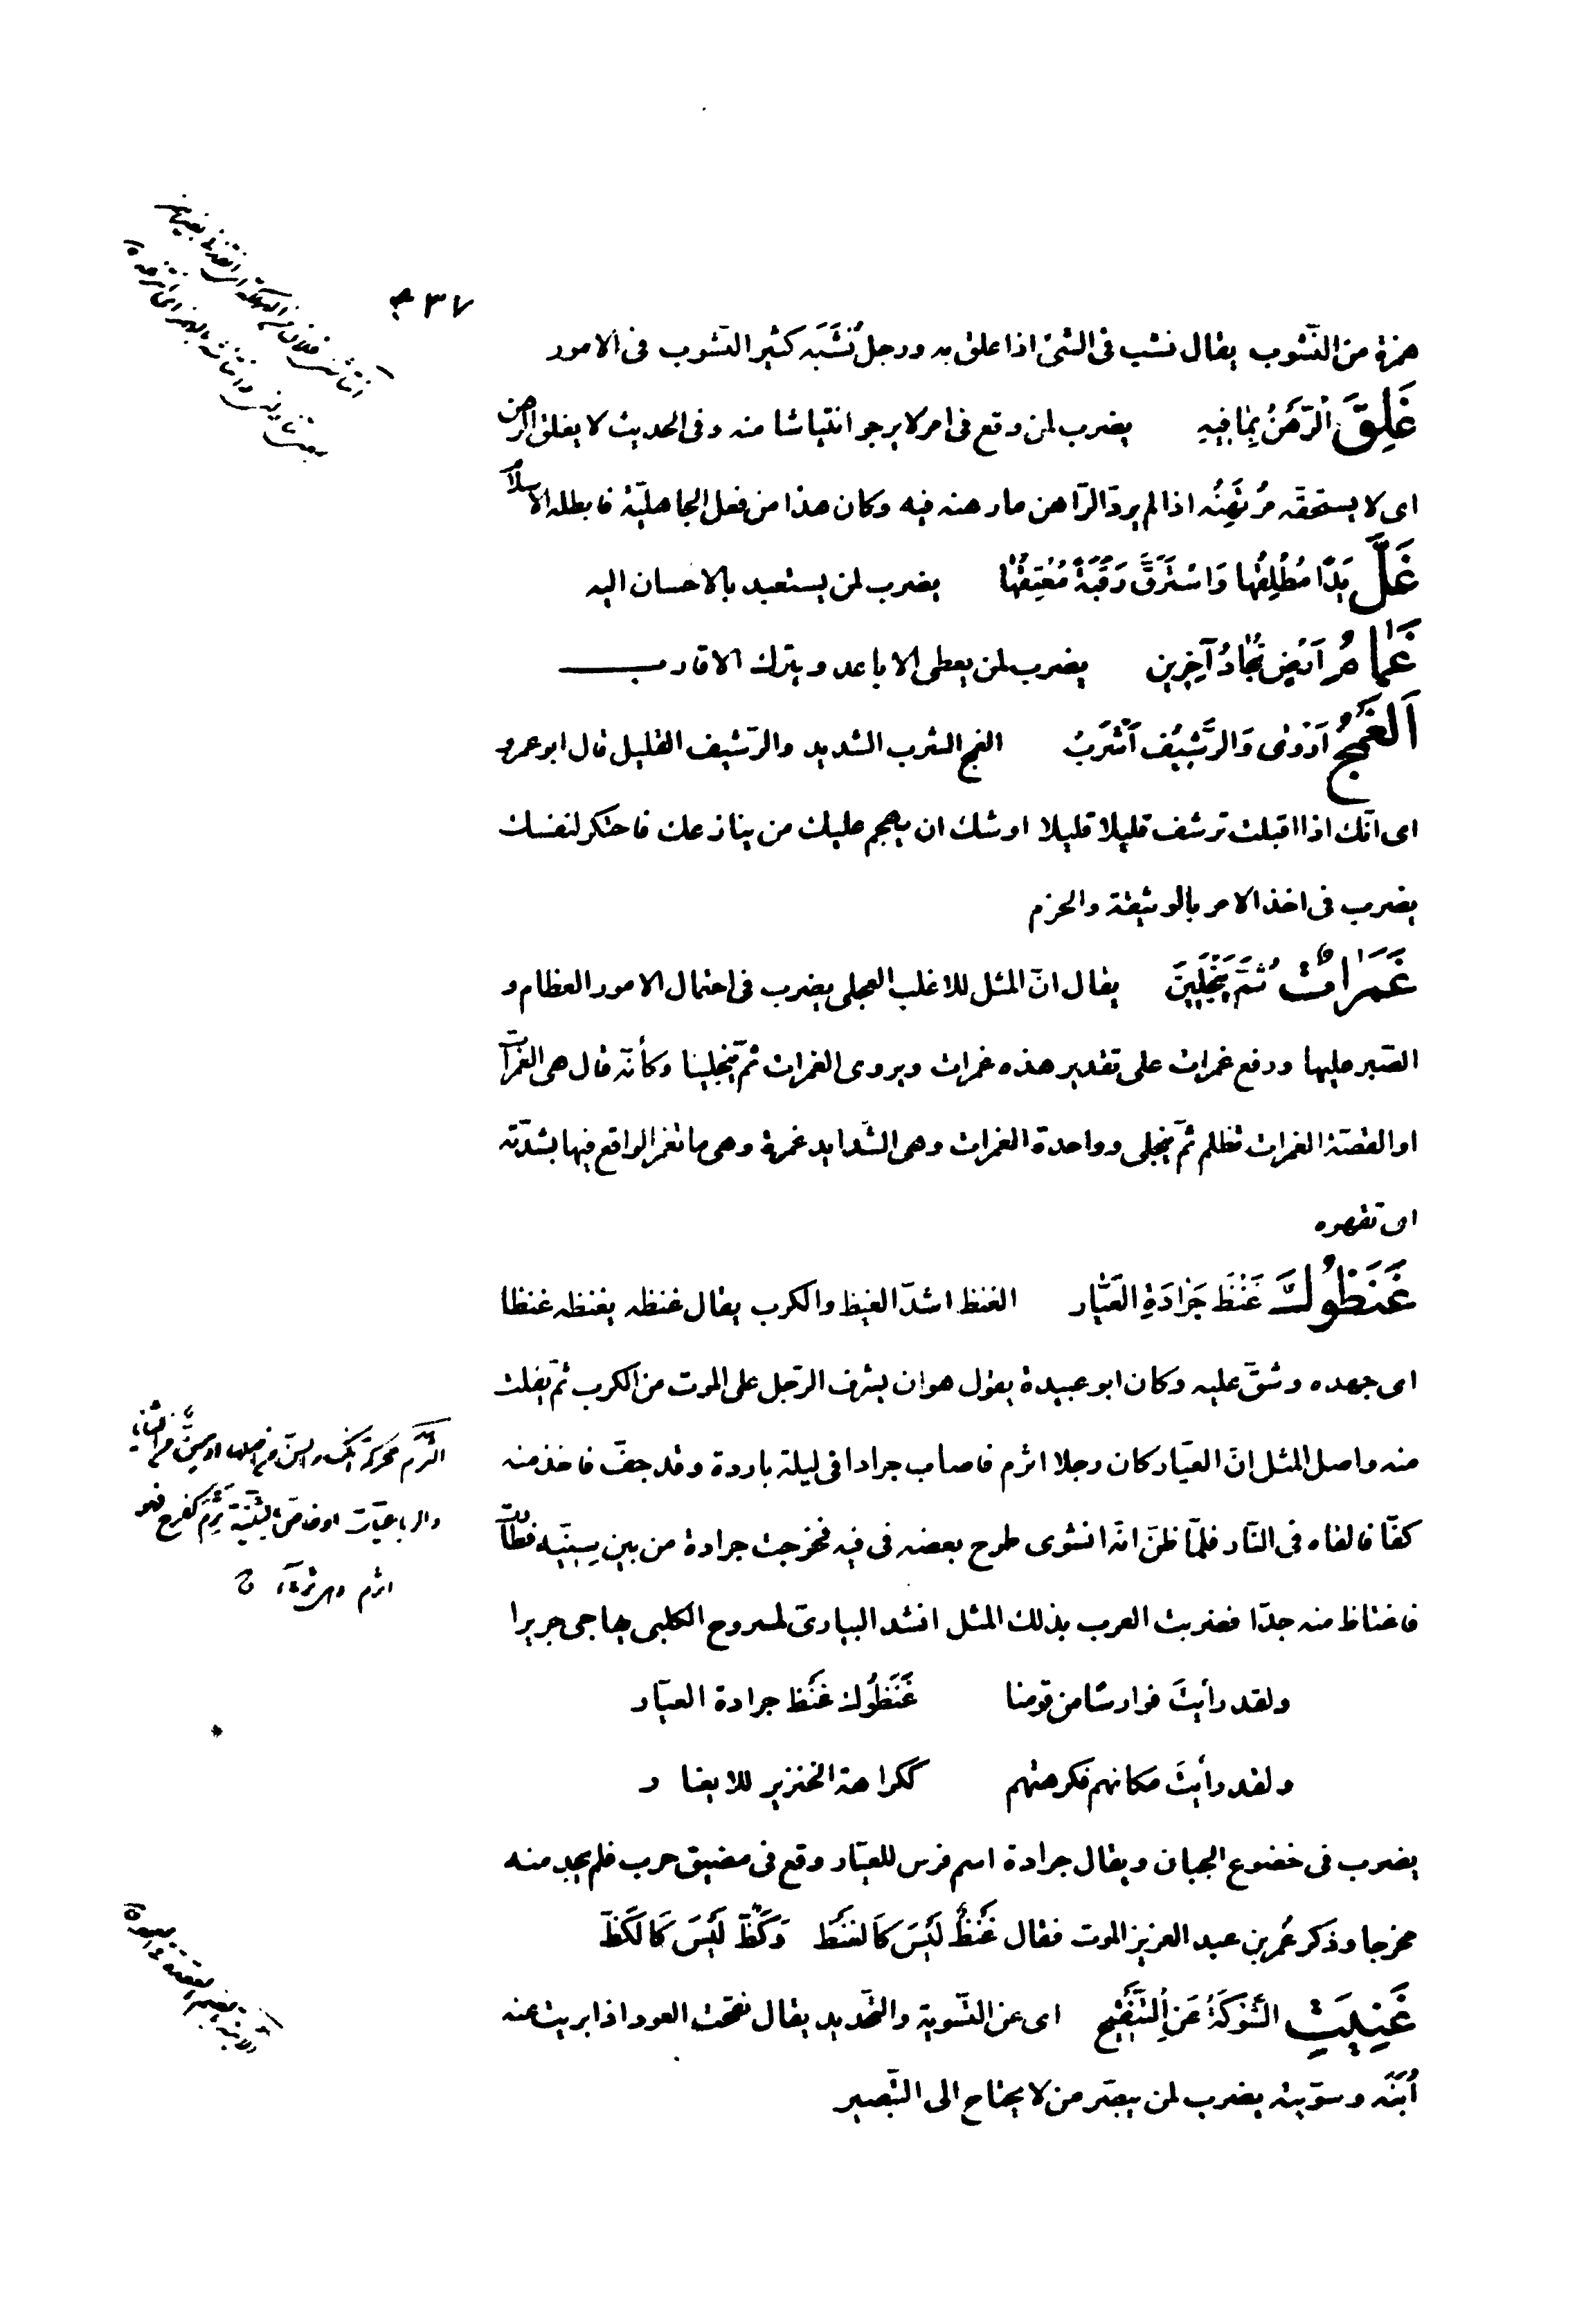 ٣٧
همزة من النّشوب يقال نشب فى الشئ اذا علق به ورجل نُشَبَه كثير النّشوب فى الامور
غَلِقَ الرَّهنُ بِمٰا فِيهِ يضرب لمن وقع فى امر لا يرجو انتياشا منه وفى الحديث لا يغلق الرهن
اى لا يستحقّه مُرتَهِنُه اذا لم يردّ الرّاهن ما رهنه فيه وكان هذا من فعل الجاهليّة فابطله الاسلام
غَلَّ يَدًا مُطْلِقُهٰا وَاسْتَرَقَّ رَقَبَةً مُعْتِقُهٰا يضرب لمن يستعبد بالاحسان اليه
غَمٰامُ اَرْضٍ جٰادُ آخَرِين يضرب لمن يعطى الاباعد ويترك الاقارب
اَلْغَمْجُ اَرْوٰى وَالرَّشِيُف اَشْرَبُ الغمج الشرب الشديد والرّشيف القليل قال ابو عمرو
اى انّك اذا اقبلت ترشف قليلا قليلا اوشك ان يهجم عليك من ينازعك فاحتكر لنفسك
يضرب فى اخذ الامر بالوثيقة والحزم
غَمَرٰاتٌ ثُمَّ يَنْجَلِينَ يقال انّ المثل للاغلب العجلى يضرب فى احتمال الامور العظام و
الصّبر عليها ورفع غمرات على تقدير هذه غمرات ويروى الغمرات ثمّ ينجلينا وكأنّه قال هى الغمرات
او القصّة الغمرات تظلم ثمّ ينجلى وواحدة الغمرات وهى الشّدايد غمرة وهى ما تغمر الواقع فيها بشدّته
اى تقهره
غَنَظُوكَ غَنْظَ جَرٰادَةِ الْعَيّٰار الغنظ اشدّ الغيظ والكرب يقال غنظه يغنظه غنظا
اى جهده وشقّ عليه وكان ابو عبيدة يقول هو ان يشرف الرّجل على الموت من الكرب ثمّ يفلت
منه واصل المثل انّ العيّار كان رجلا اثرم فاصاب جرادا فى ليلة باردة وقد جفّ فاخذ منه
كفّا فالقاه فى النّار فلمّا ظنّ انّه انشوى طرح بعضه فى فيه فخرجت جرادة من بين سِنَّيْه فطارت
فاغتاظ منه جدّا فضربت العرب بذلك المثل انشد البيارىّ لمسروح الكلبى يهاجى جريرا
ولقد رأيتَ فوارسًا من قومنا غَنَظُوك غَنْظ جرادة العيّار
ولقد رأيتَ مكانهم فكرهتهم ككراهة الخنزير للايغار
يضرب فى خضوع الجبان ويقال جرادة اسم فرس للعيّار وقع فى مضيق حرب فلم يجد منه
مخرجا وذكر عُمر بن عبد العزيز الموت فقال غَنْظٌ لَيْسَ كَالغَنْظ وَكَظٌّ لَيْسَ كَالكَظّ
غَنِيَتِ الشَّوْكَةُ عَنِ التَّنْقِيح اى عن التّسوية والتّحديد يقال نقّحت العود اذا بريت عنه
اُبَنَه وسوّيته يضرب لمن يبصّر من لا يحتاج الى التّبصير
الثَّرَم محركة
اثرم وهى ثرماء